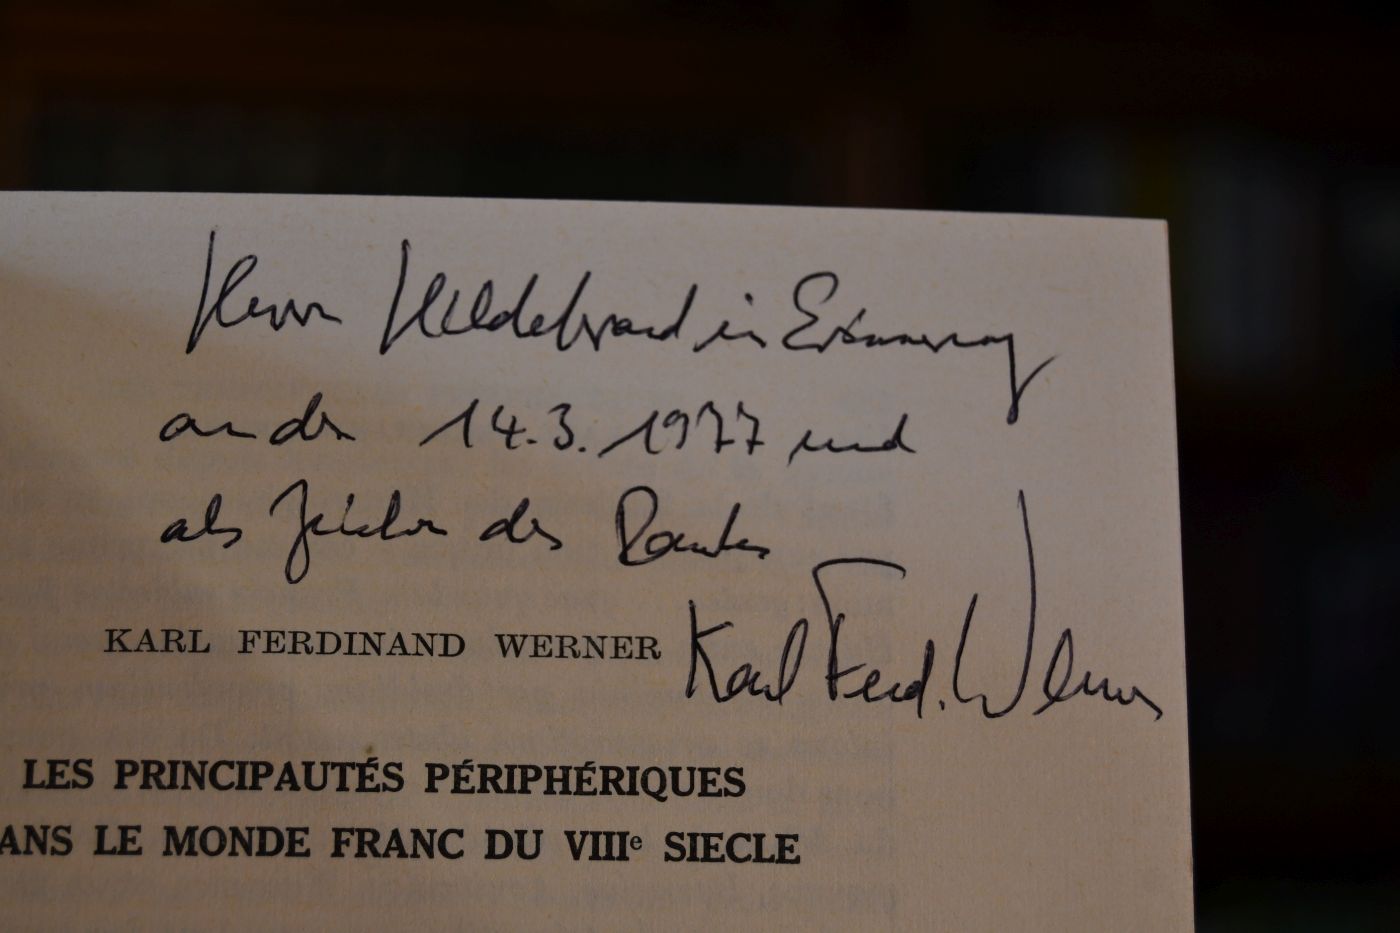 Herrn Hildebrand in Erinnerung
an den 14.3.1977 und
als Zeichen des Dankes
KARL FERDINAND WERNER Karl Ferd. Werner
LES PRINCIPAUTÉS PÉRIPHÉRIQUES
ANS LE MONDE FRANC DU VIIIe SIECLE